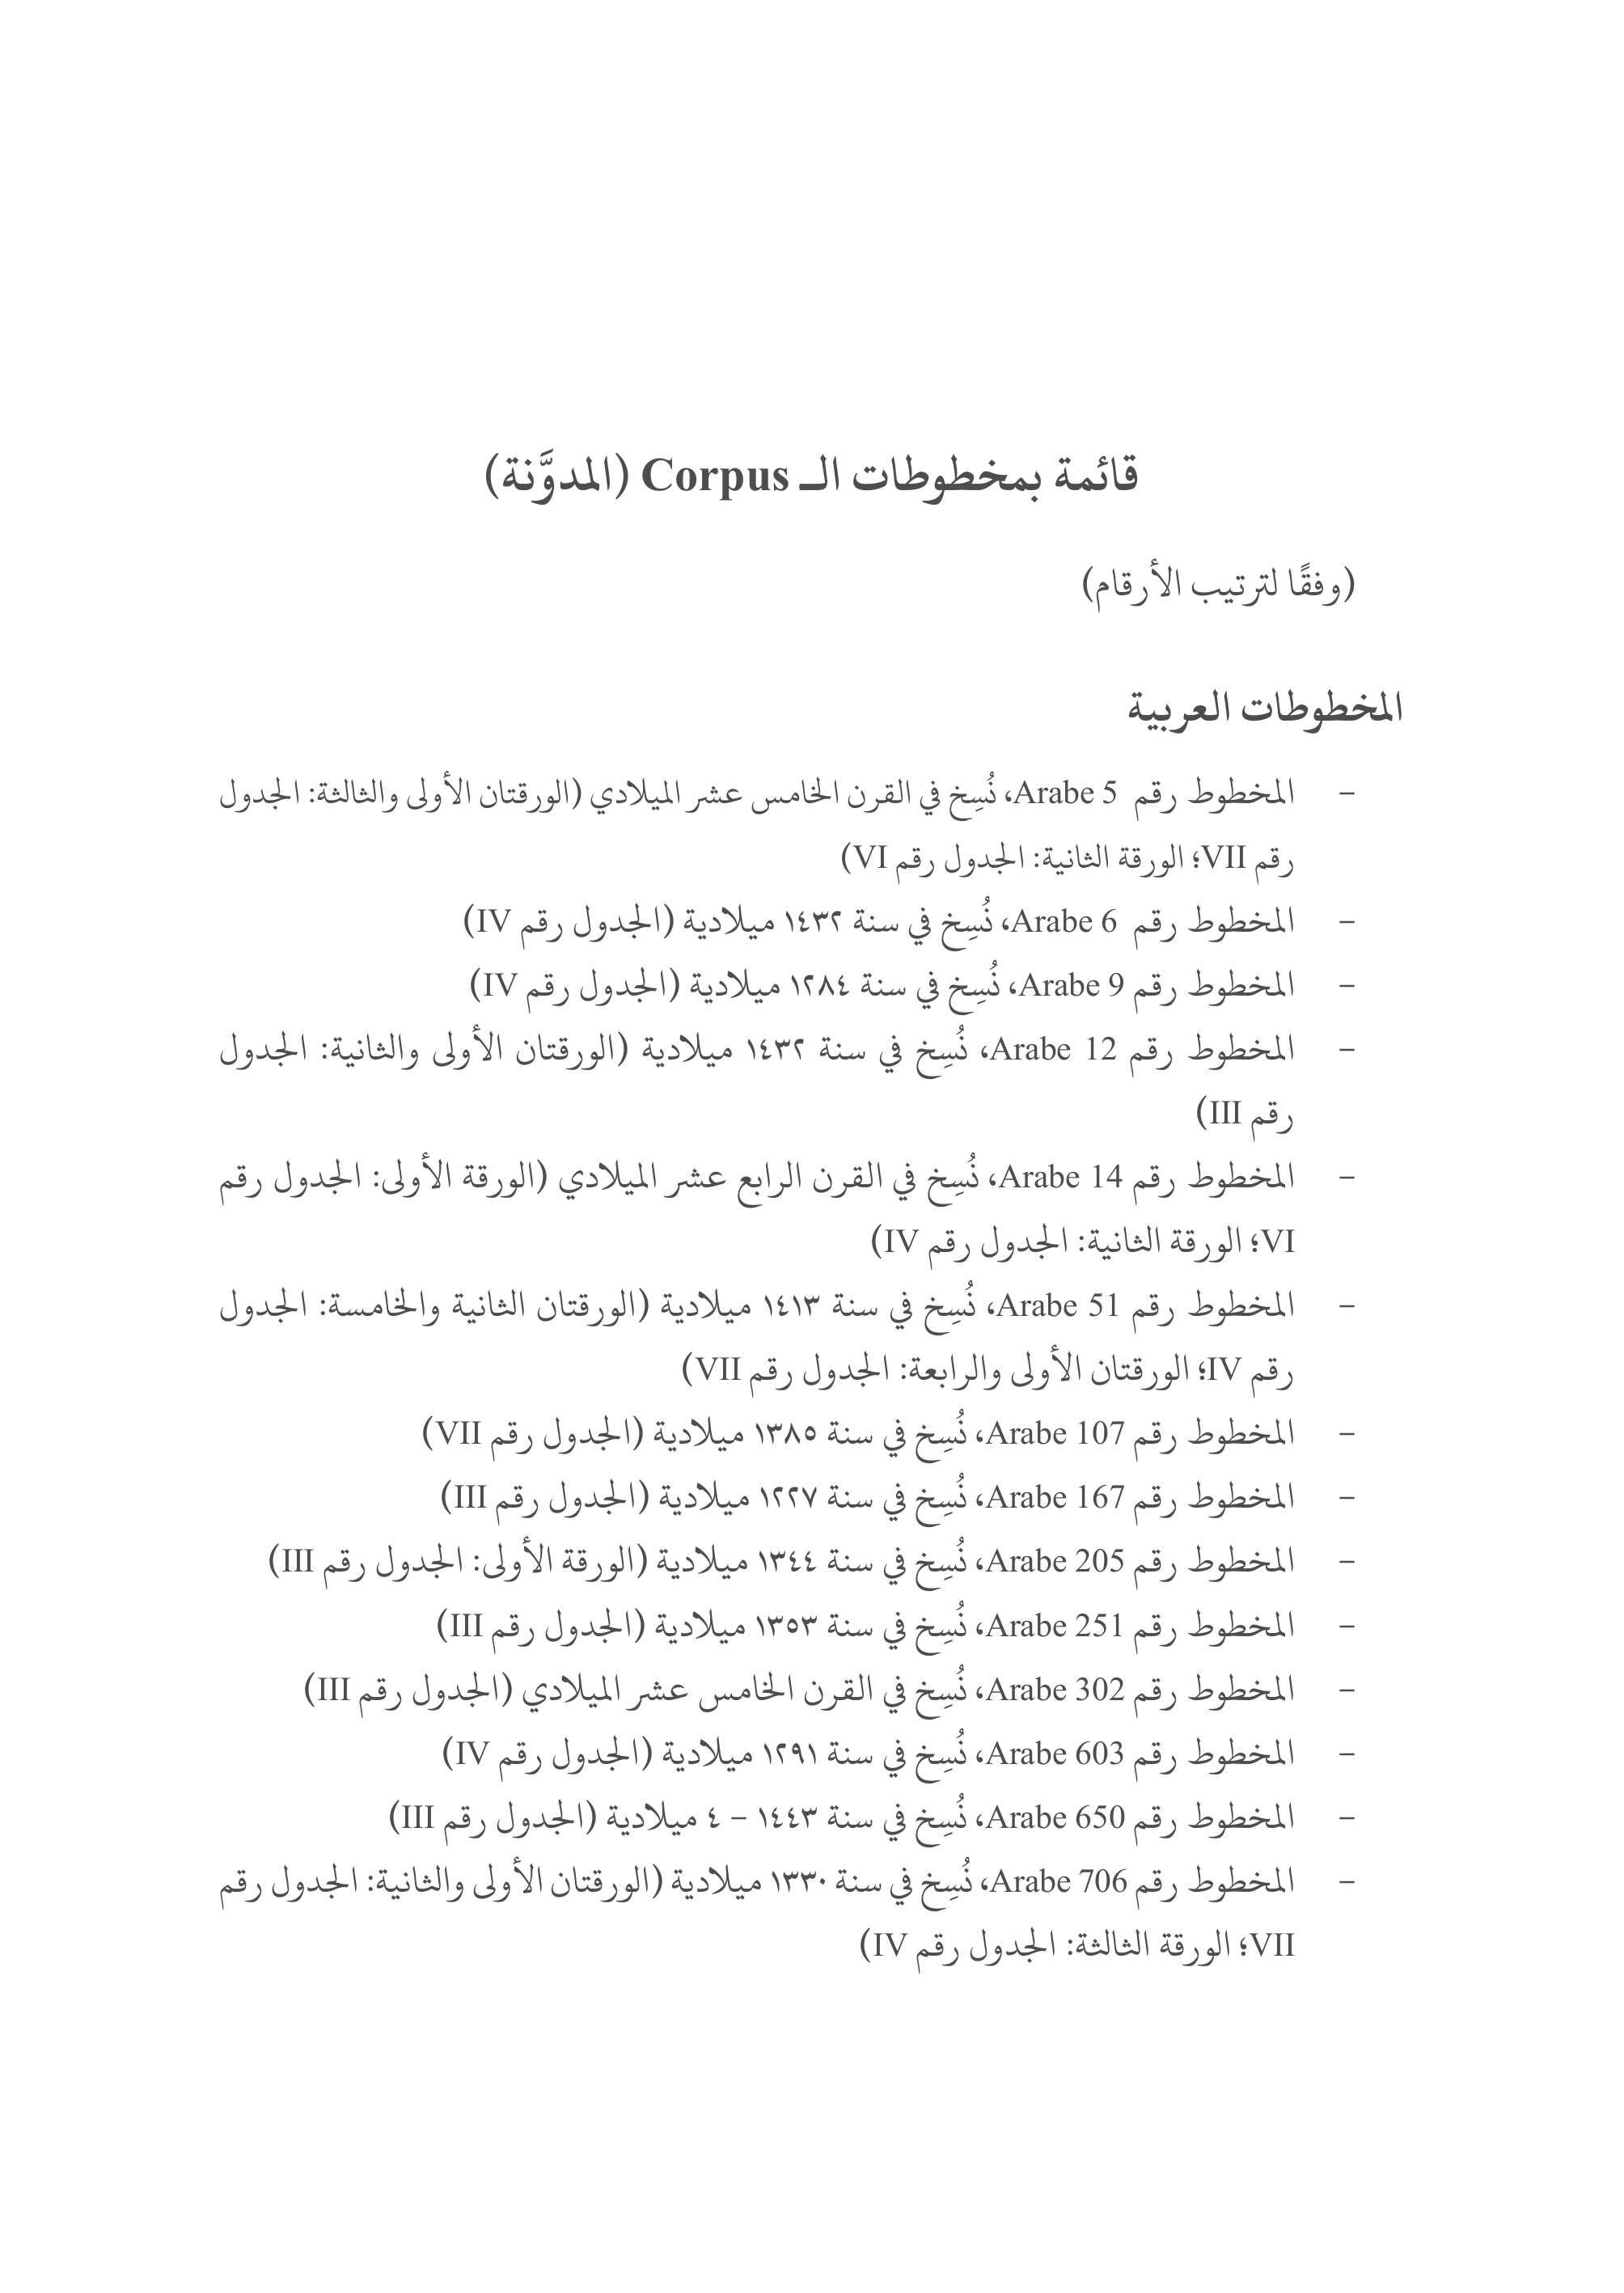 قائمة بمخطوطات الـ Corpus (المدوَّنة)
(وفقًا لترتيب الأرقام)
المخطوطات العربية
– المخطوط رقم Arabe 5، نُسِخ في القرن الخامس عشر الميلادي (الورقتان الأولى والثالثة: الجدول
رقم VII؛ الورقة الثانية: الجدول رقم VI)
– المخطوط رقم Arabe 6، نُسِخ في سنة ١٤٣٢ ميلادية (الجدول رقم IV)
– المخطوط رقم Arabe 9، نُسِخ في سنة ١٢٨٤ ميلادية (الجدول رقم IV)
– المخطوط رقم Arabe 12، نُسِخ في سنة ١٤٣٢ ميلادية (الورقتان الأولى والثانية: الجدول
رقم III)
– المخطوط رقم Arabe 14، نُسِخ في القرن الرابع عشر الميلادي (الورقة الأولى: الجدول رقم
VI؛ الورقة الثانية: الجدول رقم IV)
– المخطوط رقم Arabe 51، نُسِخ في سنة ١٤١٣ ميلادية (الورقتان الثانية والخامسة: الجدول
رقم IV؛ الورقتان الأولى والرابعة: الجدول رقم VII)
– المخطوط رقم Arabe 107، نُسِخ في سنة ١٣٨٥ ميلادية (الجدول رقم VII)
– المخطوط رقم Arabe 167، نُسِخ في سنة ١٢٢٧ ميلادية (الجدول رقم III)
– المخطوط رقم Arabe 205، نُسِخ في سنة ١٣٤٤ ميلادية (الورقة الأولى: الجدول رقم III)
– المخطوط رقم Arabe 251، نُسِخ في سنة ١٣٥٣ ميلادية (الجدول رقم III)
– المخطوط رقم Arabe 302، نُسِخ في القرن الخامس عشر الميلادي (الجدول رقم III)
– المخطوط رقم Arabe 603، نُسِخ في سنة ١٢٩١ ميلادية (الجدول رقم IV)
– المخطوط رقم Arabe 650، نُسِخ في سنة ١٤٤٣ – ٤ ميلادية (الجدول رقم III)
– المخطوط رقم Arabe 706، نُسِخ في سنة ١٣٣٠ ميلادية (الورقتان الأولى والثانية: الجدول رقم
VII؛ الورقة الثالثة: الجدول رقم IV)